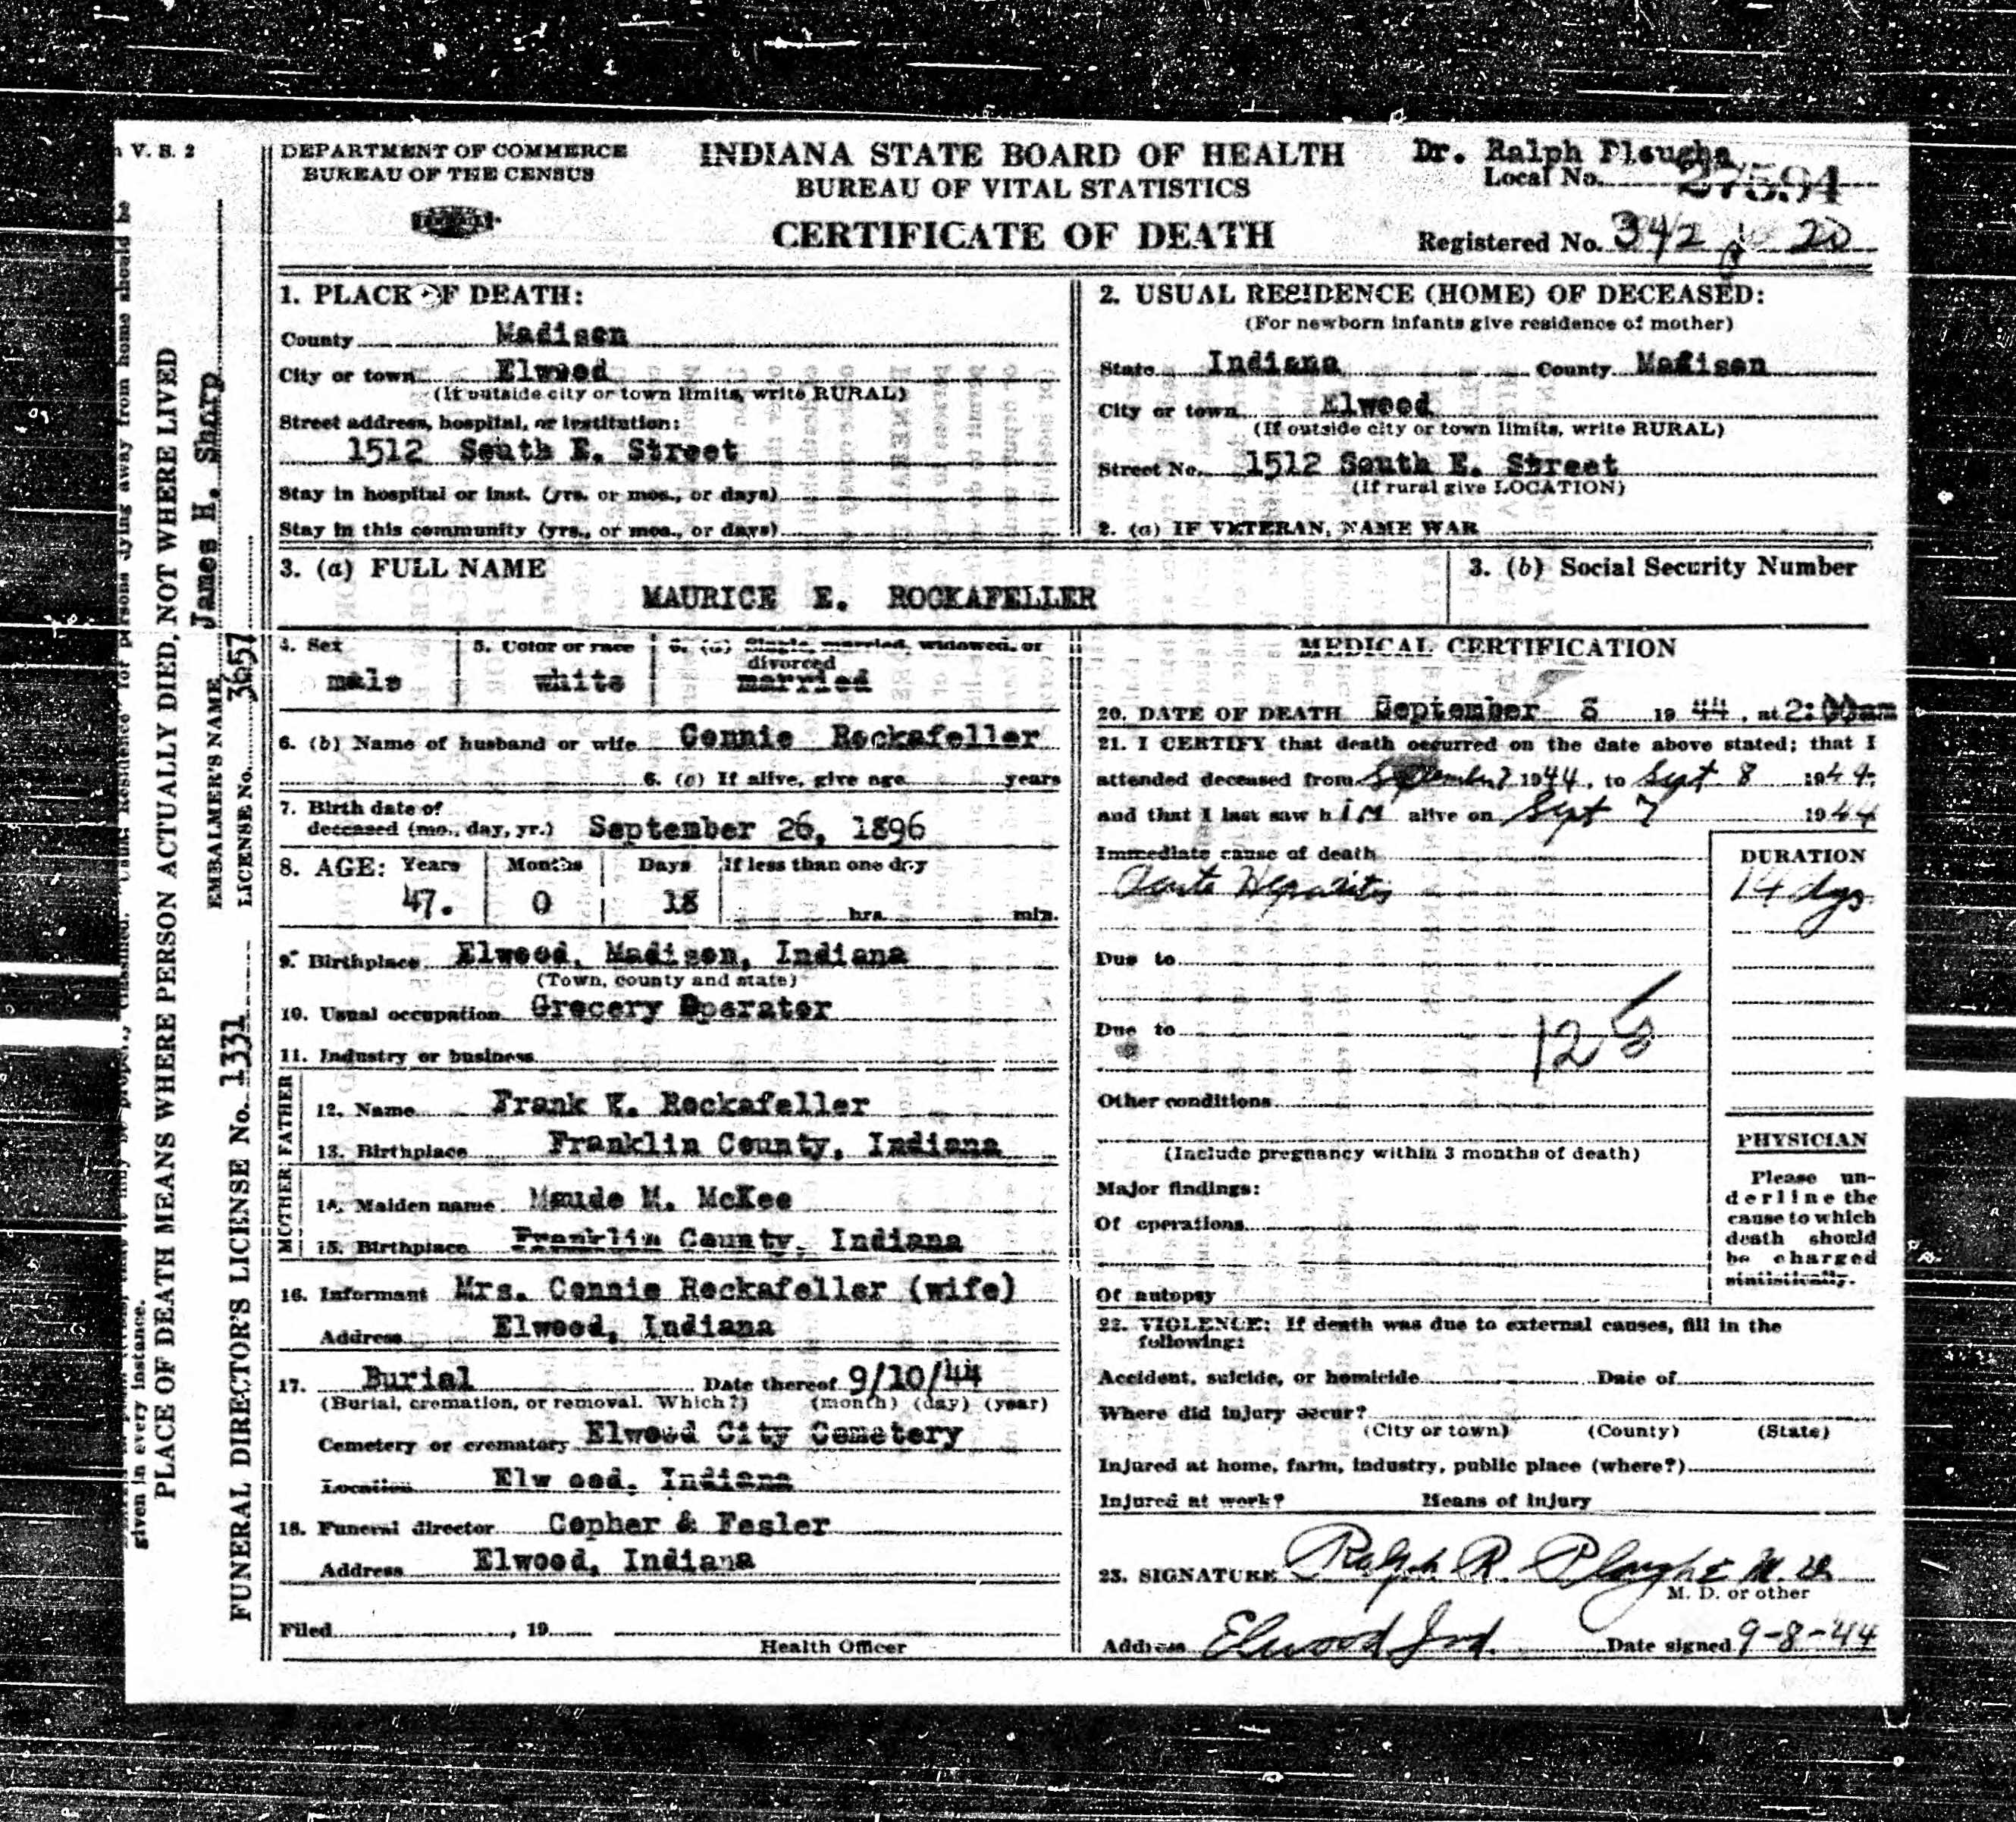 V. S. 2
DEPARTMENT OF COMMERCE
BUREAU OF THE CENSUS
INDIANA STATE BOARD OF HEALTH
BUREAU OF VITAL STATISTICS
CERTIFICATE OF DEATH
Dr. Ralph Ploughe
Local No. 27594
Registered No. 342 20
1. PLACE OF DEATH:
County Madison
City or town Elwood
(If outside city or town limits, write RURAL)
Street address, hospital, or institution:
1512 South E. Street
Stay in hospital or inst. (yrs. or mos., or days)
Stay in this community (yrs., or mos., or days)
2. USUAL RESIDENCE (HOME) OF DECEASED:
(For newborn infants give residence of mother)
State Indiana County Madison
City or town Elwood
(If outside city or town limits, write RURAL)
Street No. 1512 South E. Street
(If rural give LOCATION)
2. (a) IF VETERAN, NAME WAR
3. (a) FULL NAME
MAURICE E. ROCKAFELLER
3. (b) Social Security Number
4. Sex
male
5. Color or race
white
6. (a) Single, married, widowed, or
divorced
married
6. (b) Name of husband or wife Connie Rockafeller
6. (c) If alive, give age years
7. Birth date of
deceased (mo., day, yr.) September 26, 1896
8. AGE: Years Months Days If less than one day
47. 0 18 hrs. min.
9. Birthplace Elwood, Madison, Indiana
(Town, county and state)
10. Usual occupation Grocery Operator
11. Industry or business
FATHER
12. Name Frank W. Rockafeller
13. Birthplace Franklin County, Indiana
MOTHER
14. Maiden name Maude M. McKee
15. Birthplace Franklin County, Indiana
16. Informant Mrs. Connie Rockafeller (wife)
Address Elwood, Indiana
17. Burial Date thereof 9/10/44
(Burial, cremation, or removal. Which?) (month) (day) (year)
Cemetery or crematory Elwood City Cemetery
Location Elw ood, Indiana
18. Funeral director Copher & Fesler
Address Elwood, Indiana
Filed , 19
Health Officer
MEDICAL CERTIFICATION
20. DATE OF DEATH September 8 19 44, at 2:00am
21. I CERTIFY that death occurred on the date above stated; that I
attended deceased from September 1944, to Sept 8 1944
and that I last saw him alive on Sept 7 1944
Immediate cause of death
Acute Hepatitis
DURATION
14 dys
Due to
Due to
125
Other conditions
(Include pregnancy within 3 months of death)
Major findings:
Of operations
Of autopsy
PHYSICIAN
Please un-
derline the
cause to which
death should
be charged
statistically.
22. VIOLENCE: If death was due to external causes, fill in the
following:
Accident, suicide, or homicide Date of
Where did injury occur?
(City or town) (County) (State)
Injured at home, farm, industry, public place (where?)
Injured at work? Means of injury
23. SIGNATURE Ralph R. Ploughe M.D.
M. D. or other
Address Elwood Ind. Date signed 9-8-44
given in every instance.
PLACE OF DEATH MEANS WHERE PERSON ACTUALLY DIED, NOT WHERE LIVED
EMBALMER'S NAME James H. Sharp
FUNERAL DIRECTOR'S LICENSE No. 1331 LICENSE No. 3657